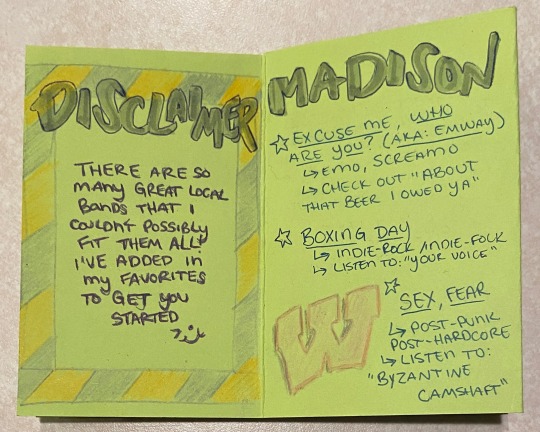 DISCLAIMER
THERE ARE SO
MANY GREAT LOCAL
BANDS THAT I
COULDN'T POSSIBLY
FIT THEM ALL!
I'VE ADDED IN
MY FAVORITES
TO GET YOU
STARTED
MADISON
EXCUSE ME, WHO
ARE YOU? (AKA: EMWAY)
↳ EMO, SCREAMO
↳ CHECK OUT "ABOUT
THAT BEER I OWED YA"
BOXING DAY
↳ INDIE-ROCK/INDIE-FOLK
↳ LISTEN TO: "YOUR VOICE"
W
SEX, FEAR
↳ POST-PUNK
POST-HARDCORE
↳ LISTEN TO:
"BYZANTINE
CAMSHAFT"